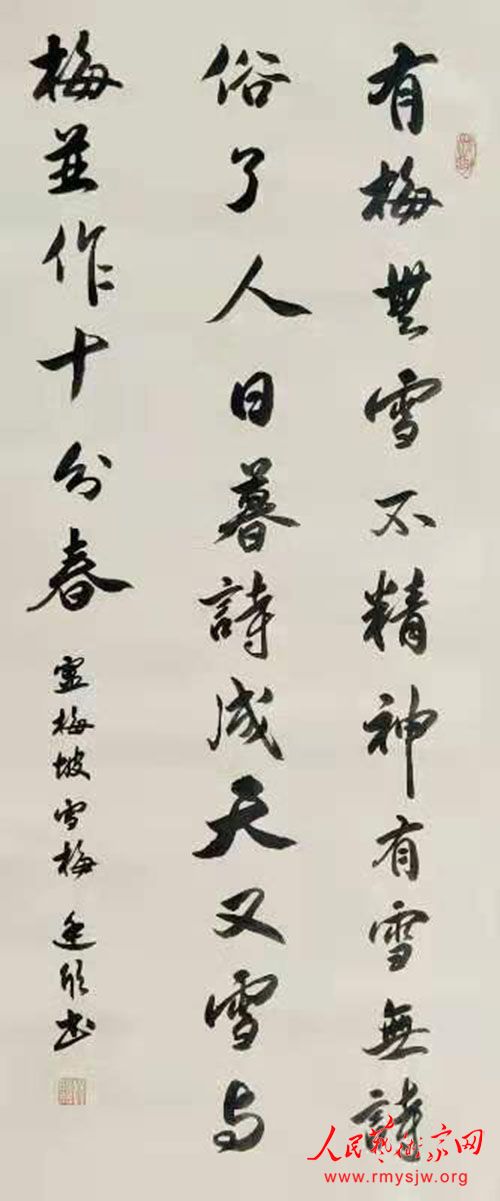 有梅無雪不精神有雪無詩
俗了人日暮詩成天又雪与
梅並作十分春 盧梅坡雪梅 欣书
人民藝術家网
www.rmysjw.org